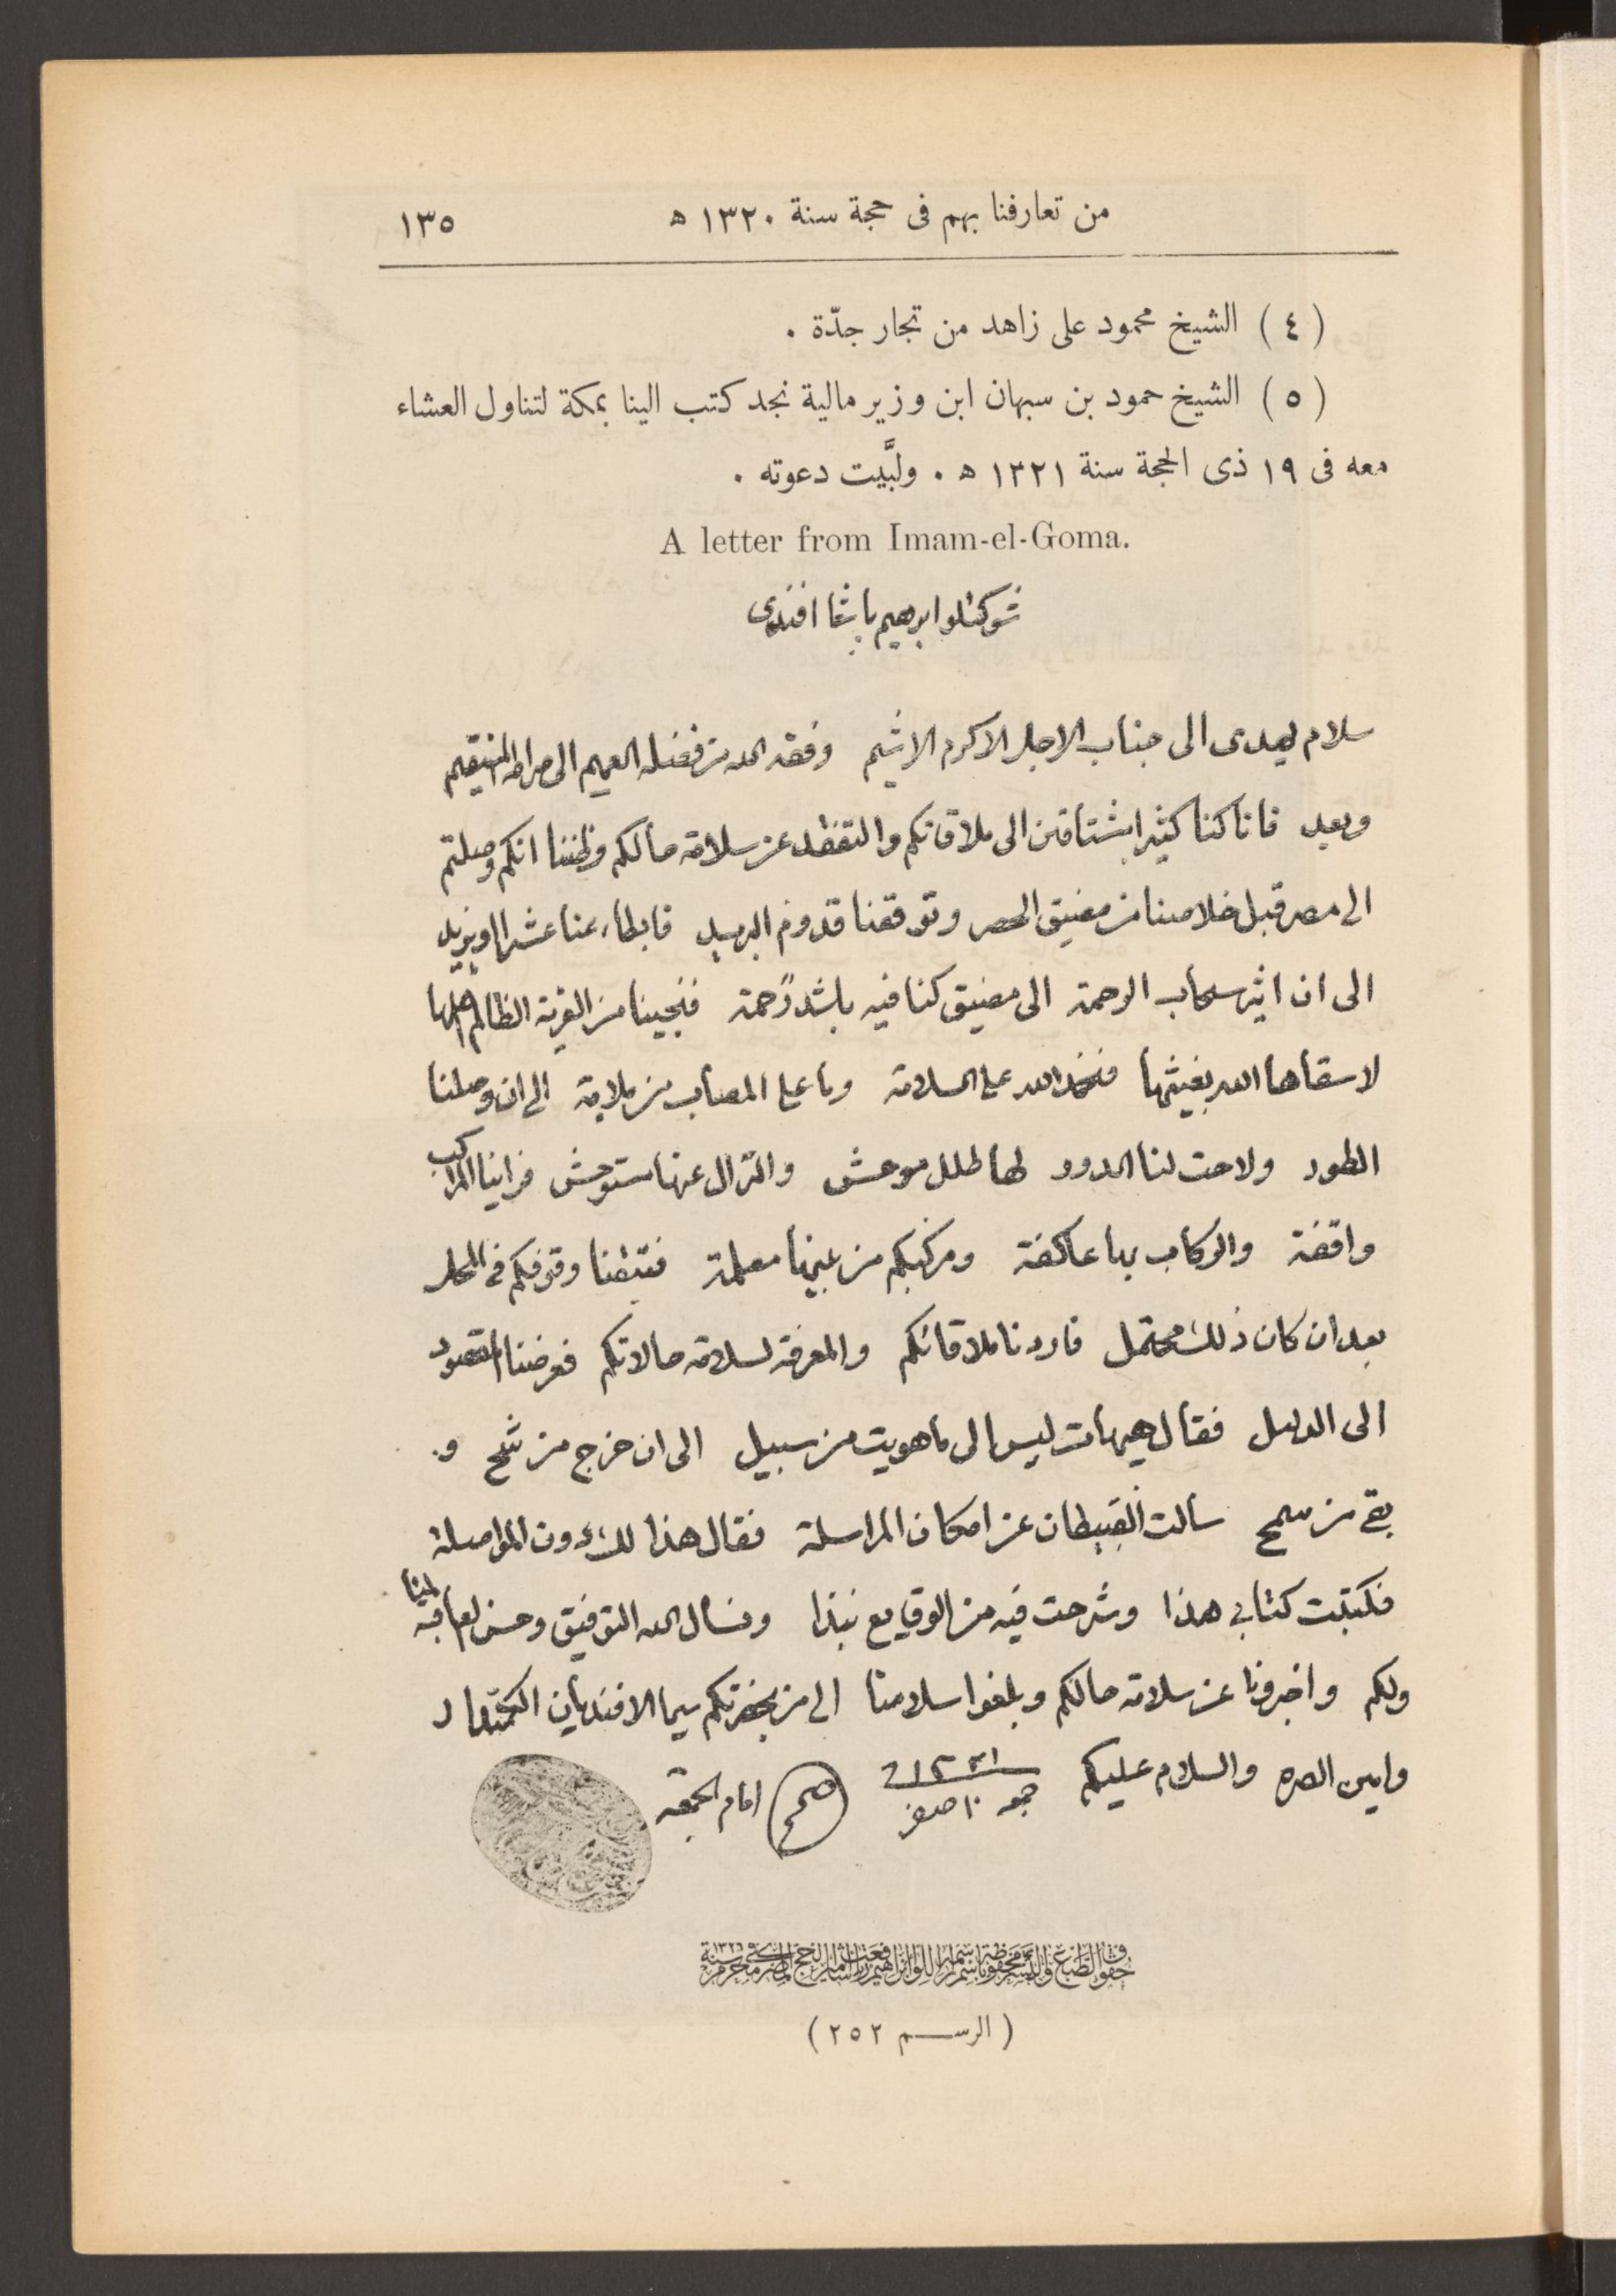 من تعارفنا بهم فى حجة سنة ١٣٢٠ ه ١٣٥
( ٤ ) الشيخ محمود على زاهد من تجار جدّة .
( ٥ ) الشيخ حمود بن سبهان ابن وزير مالية نجد كتب الينا بمكة لتناول العشاء
معه فى ١٩ ذى الحجة سنة ١٣٢١ ه . ولبَّيت دعوته .
A letter from Imam-el-Goma.
شوكتلو ابرهيم باشا افندى
سلام يهدى الى جناب الاجل الاكرم الاشيم وفقه الله من فضله العميم الى صراطه المستقيم
وبعد فانا كنا كثيرا مشتاقين الى ملاقاتكم والتفقد عن سلامة حالكم وظننا انكم وصلتم
الى مصر قبل خلاصنا من مضيق الحصر وتوقفنا قدوم البريد فابطاء عنا عشرا او يزيد
الى ان اثير سحاب الرحمة الى مضيق كنا فيه باشد زحمة فنجينا من القرية الظالم اهلها
لا سقاها الله بغيثها فنحمد الله على السلامة وما على المصاب من ملامة الى ان وصلنا
الطور ولاحت لنا الدور لها طلل موحش والنزال عنها مستوحش فراينا المراكب
واقفة والركاب بها عاكفة ومركبكم من بينها معلمة فتيقنا وقوفكم فى المحل
بعد ان كان ذلك محتمل فاردنا ملاقاتكم والمعرفة لسلامة حالاتكم فعرضنا المقصود
الى الدليل فقال هيهات ليس الى ما هويت من سبيل الى ان خرج من شح و
بقى من سمح سالت القبيطان عن امكان المراسلة فقال هذا لك دون المواصلة
فكتبت كتابى هذا وشرحت فيه من الوقايع نبذا ونسال الله التوفيق وحسن العاقبة لنا
ولكم واخبرونا عن سلامة حالكم وبلغوا سلامنا الى من بحضرتكم سيما الافنديان الحكمدار
وامين الصره والسلام عليكم جمعه ١٠ صفر ١٣٢١ صح امام الجمعة
حقوق الطبع محفوظة
( الرسم ٢٥٢ )